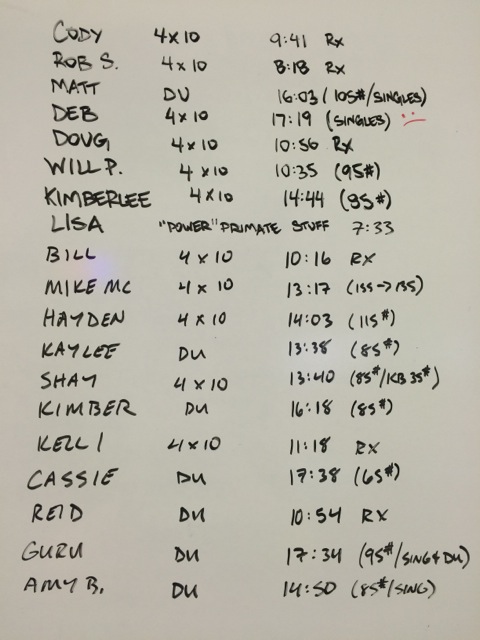 CODY 4x10 9:41 Rx
ROB S. 4x10 8:18 Rx
MATT DU 16:03 (105#/SINGLES)
DEB 4x10 17:19 (SINGLES)
DOUG 4x10 10:56 Rx
WILL P. 4x10 10:35 (95#)
KIMBERLEE 4x10 14:44 (95#)
LISA "POWER" PRIMATE STUFF 7:33
BILL 4x10 10:16 RX
MIKE MC 4x10 13:17 (155->135)
HAYDEN 4x10 14:03 (115#)
KAYLEE DU 13:38 (85#)
SHAY 4x10 13:40 (85#/KB 35#)
KIMBER DU 16:18 (85#)
KELLI 4x10 11:18 RX
CASSIE DU 17:38 (65#)
REID DU 10:54 RX
GURU DU 17:34 (95#/SING & DU)
AMY B. DU 14:50 (85#/SING)